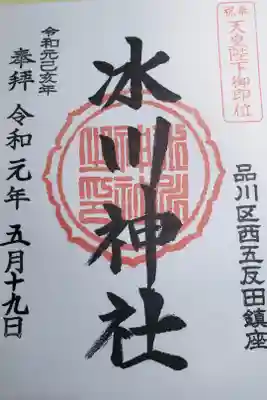 奉祝
天皇陛下御即位
品川区西五反田鎮座
氷川神社
令和元己亥年
奉拝 令和元年 五月十九日